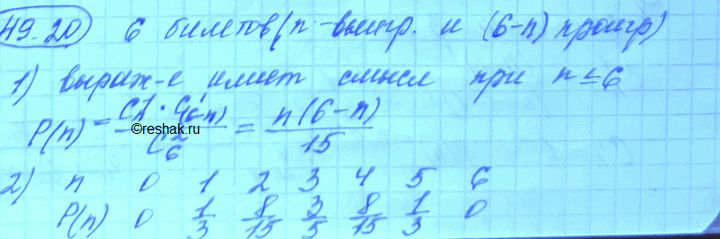 49.20 6 билетов (n - выигр. и (6-n) проигр)
1) выраж-е имеет смысл при n ≤ 6
P(n) = C¹ₙ · C¹₍₆₋ₙ₎ / C²₆ = n(6-n) / 15
©reshak.ru
2) n 0 1 2 3 4 5 6
P(n) 0 1/3 8/15 3/5 8/15 1/3 0